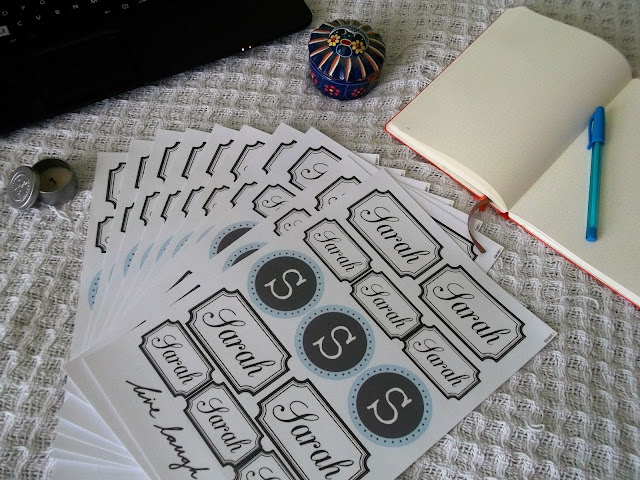 Sarah
Sarah
Sarah
Sarah
Sarah
S
S
S
Sarah
Sarah
Sarah
Sarah
live laugh